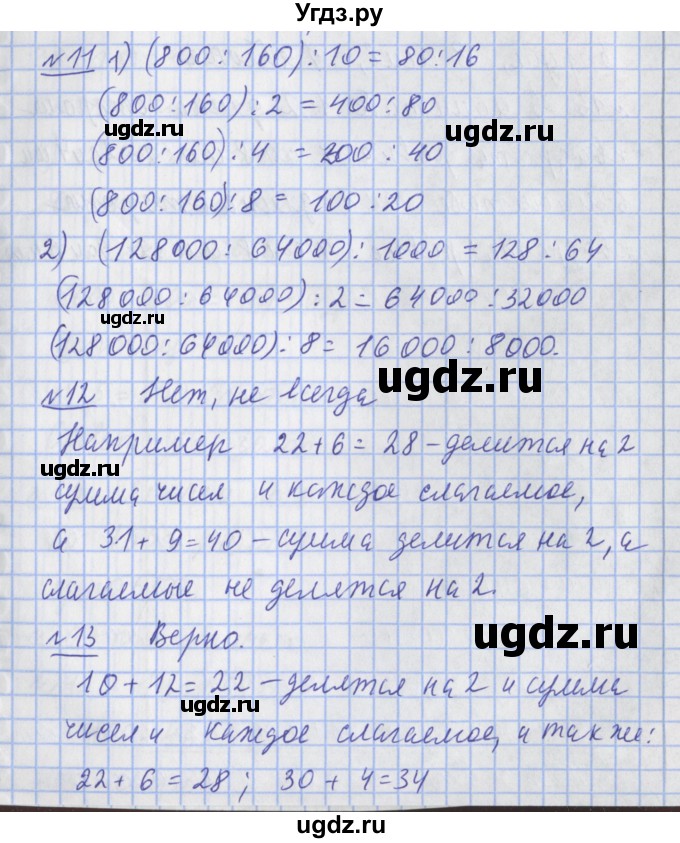 Угдз.ру
№11 1) (800:160):10 = 80:16
(800:160):2 = 400:80
ugdz.ru
ugdz.ru
(800:160):4 = 200:40
ugdz.ru
(800:160):8 = 100:20
2) (128000:64000):1000 = 128:64
(128000:64000):2 = 64000:32000
ugdz.ru
(128000:64000):8 = 16000:8000.
ugdz.ru
№12 Нет, не всегда
Например 22+6=28 – делится на 2
ugdz.ru
ugdz.ru
сумма чисел и каждое слагаемое,
а 31+9=40 – сумма делится на 2, а
ugdz.ru
слагаемые не делятся на 2.
№13 Верно.
ugdz.ru
10+12=22 – делятся на 2 и сумма
ugdz.ru
чисел и каждое слагаемое, и также:
22+6=28; 30+4=34
ugdz.ru